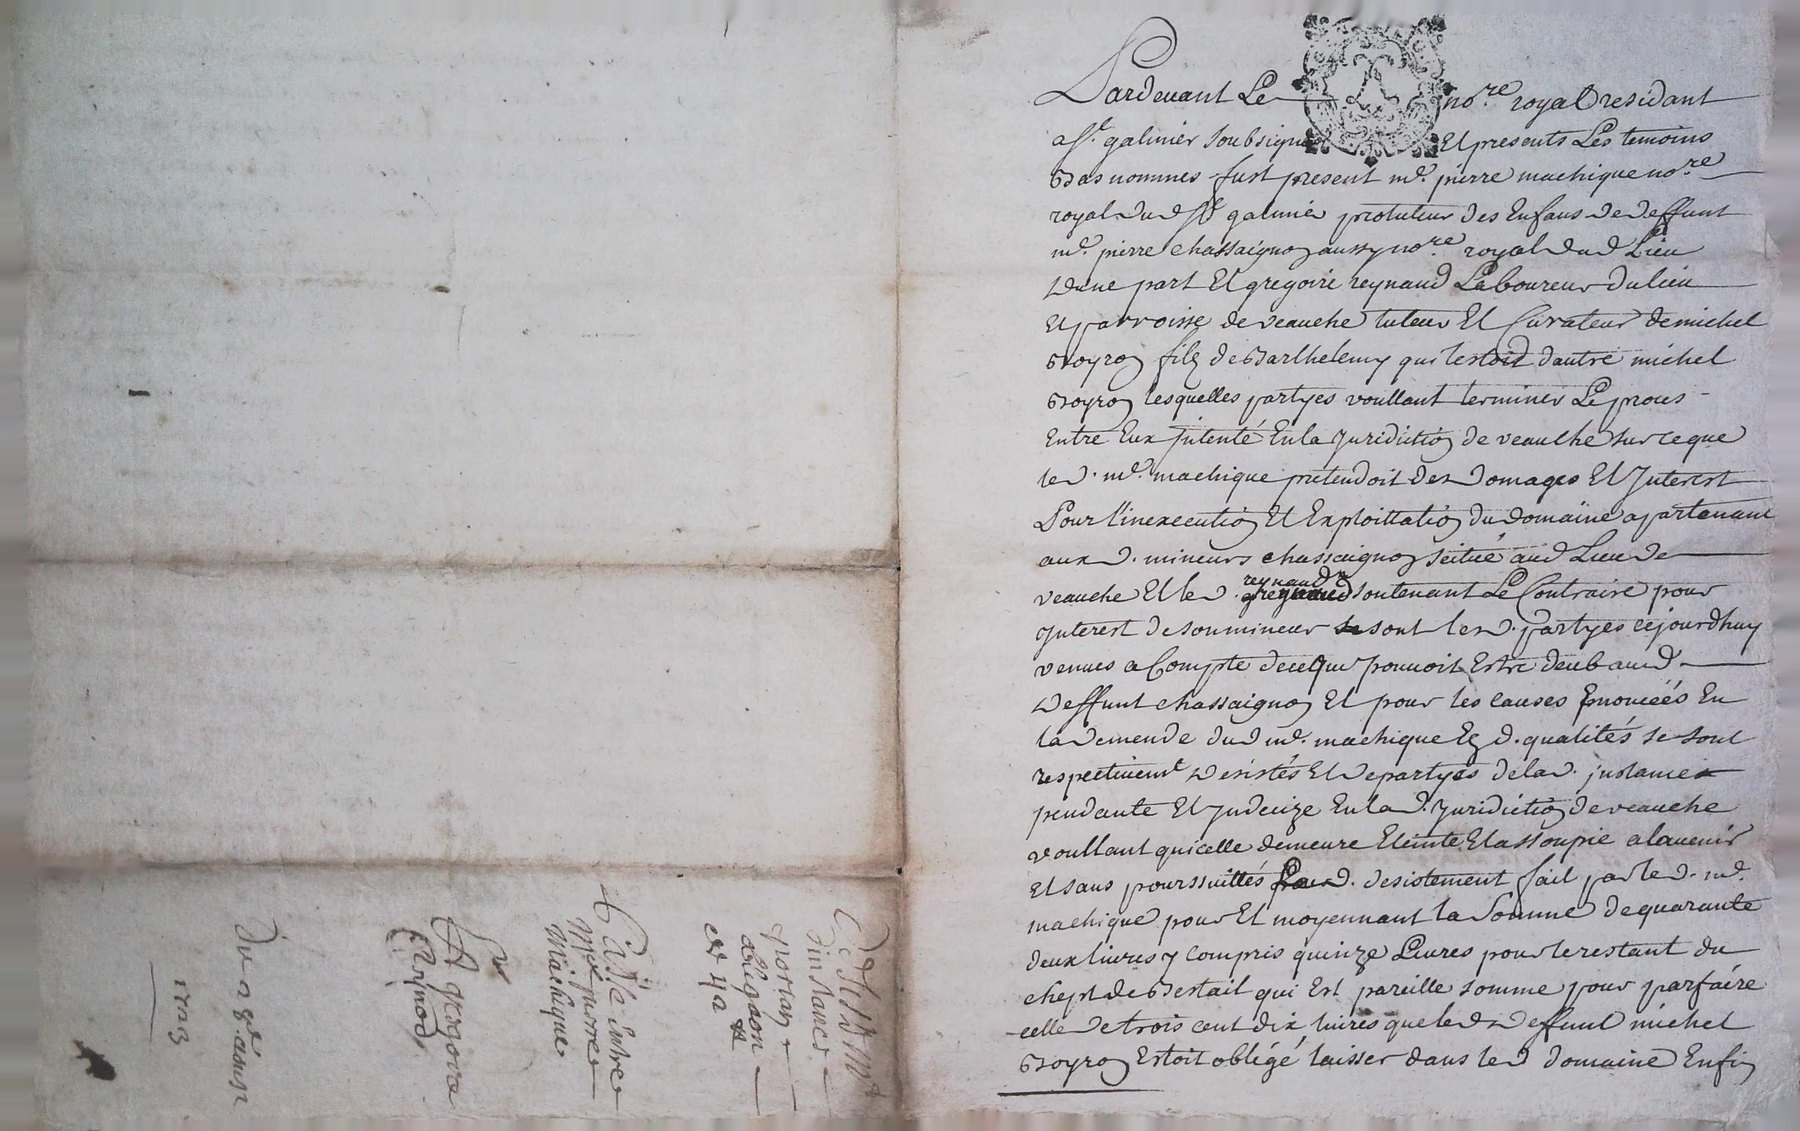 Pardevant Le no.re royal residant
a st. galmier soubsigné Et presents Les temoins
Bas nommes fust present me. pierre machique no.re
royal dud st galmier protuteur des Enfans de deffunt
me. pierre chassaignon aussy no.re royal dud Lieu
dune part Et gregoire reynaud Laboureur du lieu
Et parroisse de veauche tuteur Et Curateur de michel
Boyron filz de Barthelemy qui lestoit dautre michel
Boyron lesquelles partyes voullant terminer Le proces
Entre Eux Intenté En la Juridiction de veauche sur ce que
led. me. machique pretendoit des domages Et Interest
Pour l'inexecution Et Exploittation du domaine apartenant
aux d. mineurs chassaignon scitué aud Lieu de
veauche Et led. reynaud soutenant Le Contraire pour
Interest de son mineur se sont lesd. partyes cejourdhuy
venues a Compte de ce qui pouvoit Estre deub aud.
deffunt chassaignon Et pour les causes Enoncéés En
la demende dud me. machique Ez d. qualités se sont
respectivemt desistés Et departyes de lad. instance
pendante Et Indecize En lad. Juridiction de veauche
voullant quicelle demeure Eteinte Et assoupie a lavenir
Et sans pourssuittés Led. desistement fait par led. me.
machique pour Et moyennant la somme de quarante
deux livres y compris quinze Livres pour le restant du
chept de Bestail qui Est pareille somme pour parfaire
celle de trois cent dix livres que led deffunt michel
Boyron Estoit obligé laisser dans led domaine Enfin
dinstance
portan
obligaon
de 42
Passé Entre
Me pierre
Machique
Et gregoire
Reynaud
Du 2 8e.
1713